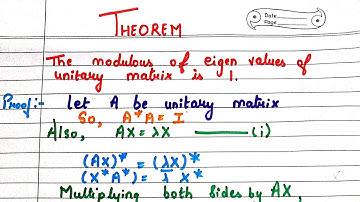 THEOREM
Date
Page
The modulous of eigen values of
unitary matrix is 1.
Proof:- Let A be unitary matrix
So, A*A = I
Also, AX = λX —— (i)
(AX)* = (λX)*
(X*A*) = λ̄ X*
Multiplying both sides by AX,